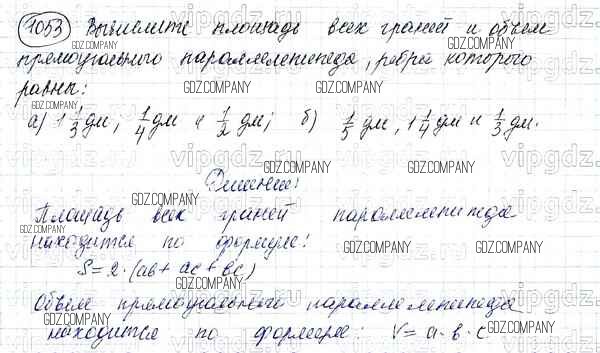 1053 Вычислите площадь всех граней и объем
прямоугольного параллелепипеда, ребра которого
равны:
а) 1 1/3 дм, 1/4 дм и 1/2 дм; б) 1/5 дм, 1 1/4 дм и 1/3 дм.
Решение:
Площадь всех граней параллелепипеда
находится по формуле:
S = 2·(ab + ac + bc)
Объем прямоугольного параллелепипеда
находится по формуле: V = a·b·c